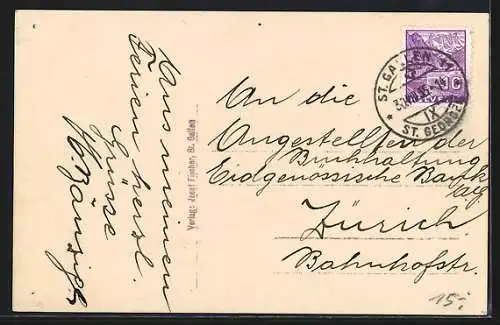 Aus meinen
Ferien herzl.
Grüsse
Verlag: Josef Fischer, St. Gallen
ST. GALLEN 11
ST. GEORGEN
IX
An die
Angestellten der
Buchhaltung
Eidgenössische Bank
Zürich
Bahnhofstr.
15.-